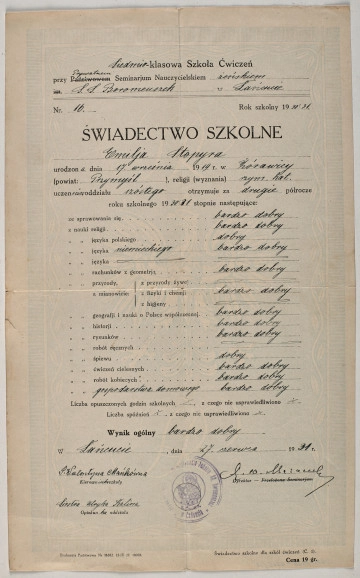 Siedmio-klasowa Szkoła Ćwiczeń
przy Prywatnem Państwowem Seminarjum Nauczycielskiem żeńskiem
im. S.S. Boromeuszek w Łańcucie
Nr. 16. Rok szkolny 1930/31.
ŚWIADECTWO SZKOLNE
Emilja Kopyra
urodzona dnia 17 września 1919 r. w Żórawicy
(powiat: Przemyśl), religji (wyznania) rzym. kat.
uczeń oddziału szóstego otrzymuje za drugie półrocze
roku szkolnego 1930/31 stopnie następujące:
ze sprawowania się bardzo dobry
z nauki religji bardzo dobry
" " języka polskiego dobry
" " języka niemieckiego bardzo dobry
" " języka
" " rachunków z geometrją bardzo dobry
" " przyrody, a mianowicie: z przyrody żywej bardzo dobry
z fizyki i chemji bardzo dobry
z higjeny
" " geografji i nauki o Polsce współczesnej bardzo dobry
" " historji bardzo dobry
" " rysunków bardzo dobry
" " robót ręcznych
" " śpiewu dobry
" " ćwiczeń cielesnych bardzo dobry
" " robót kobiecych bardzo dobry
" " gospodarstwa domowego bardzo dobry
Liczba opuszczonych godzin szkolnych — z czego nie usprawiedliwiono —
Liczba spóźnień — z czego nie usprawiedliwiono —
Wynik ogólny bardzo dobry
W Łańcucie dnia 27 czerwca 1931.
Opiekun oddziału
Cena 19 gr.